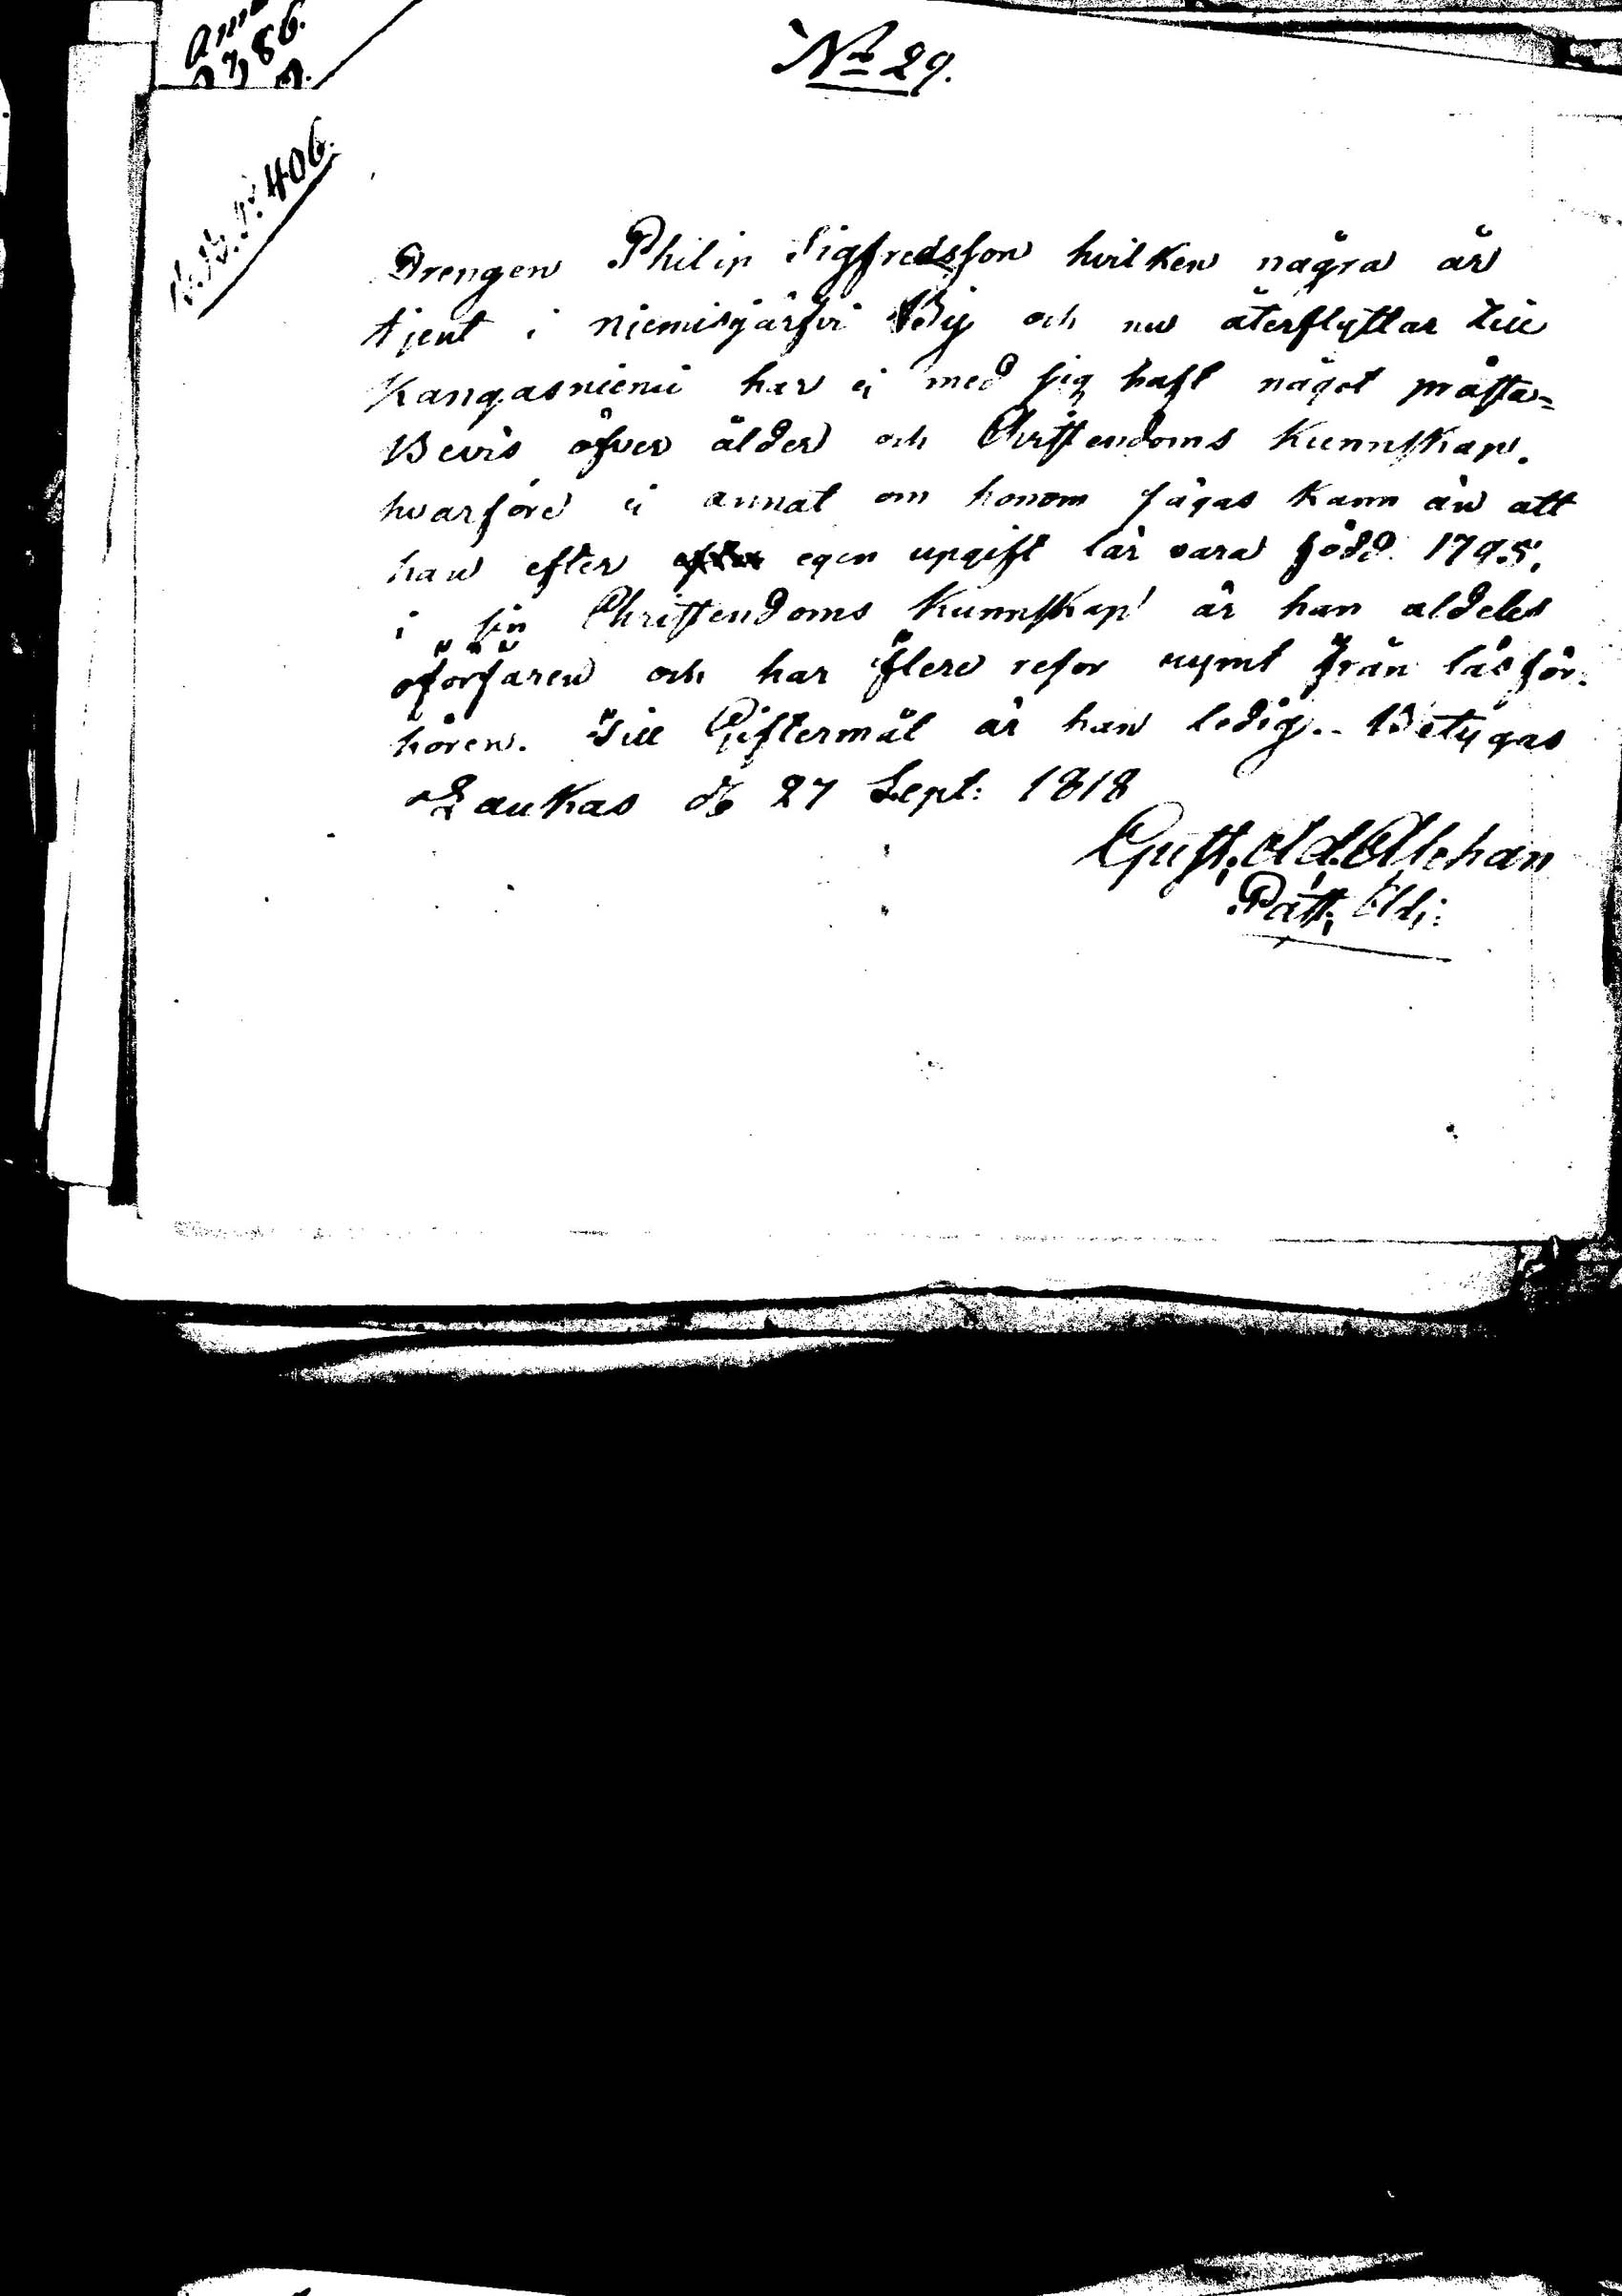 No 29.
406.
Drengen Philip Sigfredsson hvilken några år
tjent i Niemisjärfvi By och nu återflyttar till
Kangasniemi har ej med sig haft något prästa-
Bevis öfver ålder och Christendoms Kunnskap.
hvarföre ej annat om honom sägas kann än att
han efter egen upgift lär vara född 1795.
i sin Christendoms Kunnskap är han aldeles
oförfaren och har flere resor rymt från läsför-
hören. Till Giftermål är han ledig. Betygas
Laukas d 27 Sept: 1818
Gust: Ad.
Past: Adj: